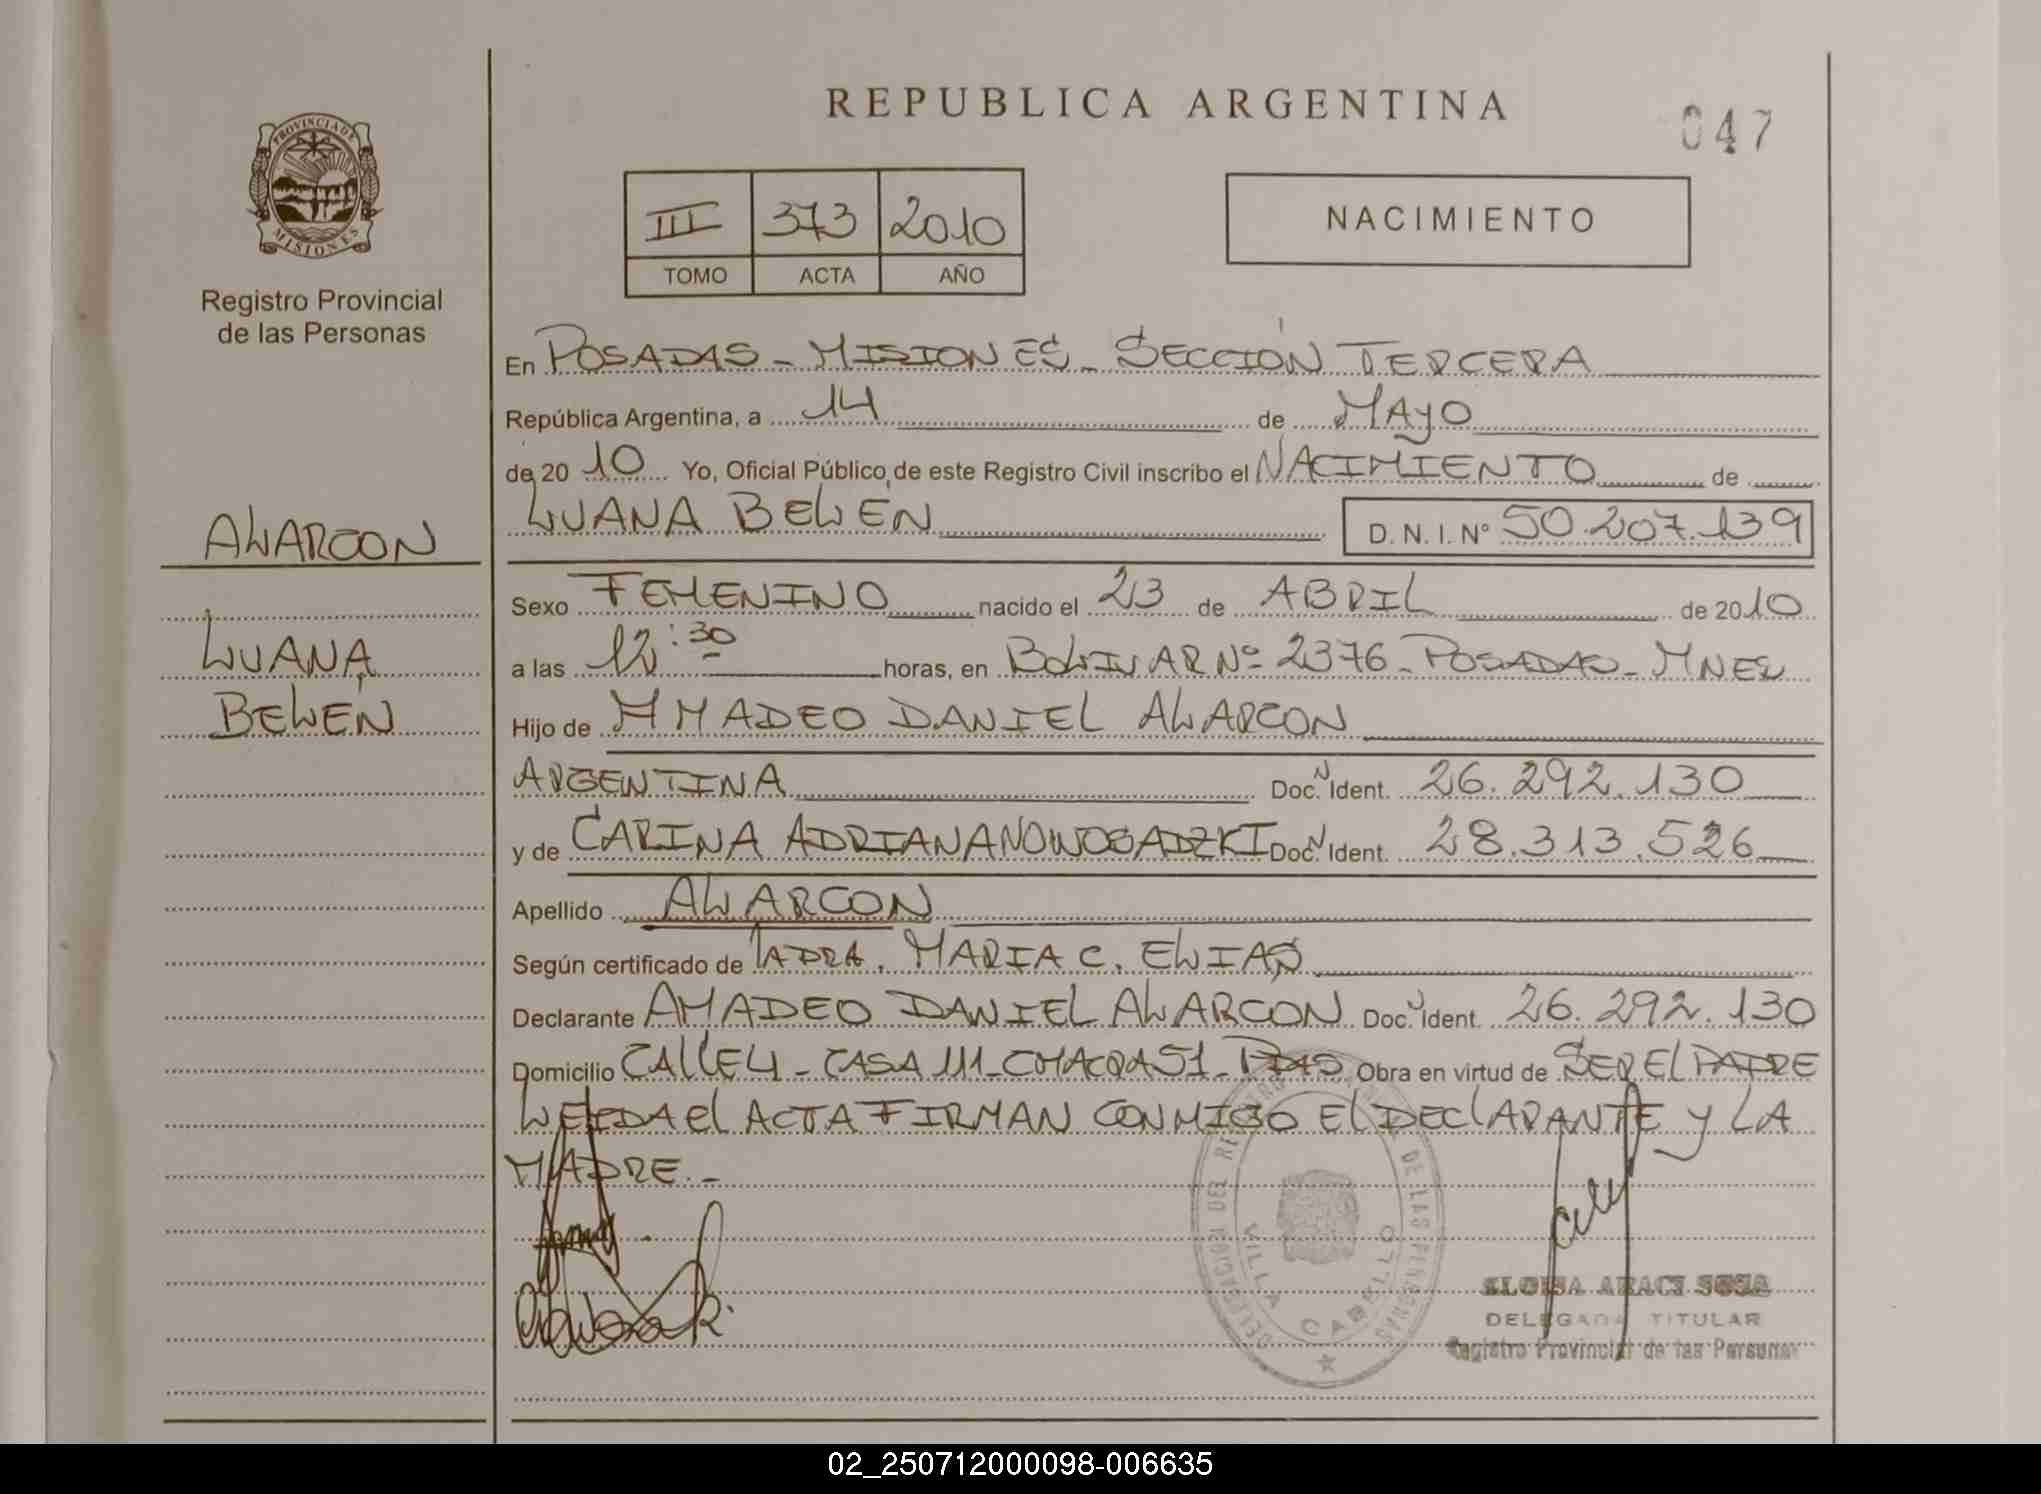 REPUBLICA ARGENTINA
047
PROVINCIA DE
MISIONES
Registro Provincial
de las Personas
III 373 2010
TOMO ACTA AÑO
NACIMIENTO
En POSADAS - MISIONES - SECCIÓN TERCERA
República Argentina, a 14 de MAYO
de 20 10 Yo, Oficial Público de este Registro Civil inscribo el NACIMIENTO de
LUANA BELÉN D. N. I. Nº 50.207.139
ALARCON
LUANA
BELÉN
Sexo FEMENINO nacido el 23 de ABRIL de 2010
a las 12:30 horas, en BOLIVAR Nº 2376 - POSADAS - MNES
Hijo de AMADEO DANIEL ALARCON
ARGENTINA Doc. Ident. 26.292.130
y de CARINA ADRIANA NOWOSADZKI Doc. Ident. 28.313.526
Apellido ALARCON
Según certificado de LA DRA. MARIA C. ELIAS
Declarante AMADEO DANIEL ALARCON Doc. Ident. 26.292.130
Domicilio CALLE 4 - CASA 111 - CHACRA 51 - PDAS Obra en virtud de SER EL PADRE
LEIDA El ACTA FIRMAN CONMIGO El DEClARANTE y LA
MADRE.-
DELEGACION DEL REGISTRO DE LAS PERSONAS
VILLA CABELLO
ELOISA ARACI SOSA
DELEGADA TITULAR
Registro Provincial de las Personas
02_250712000098-006635